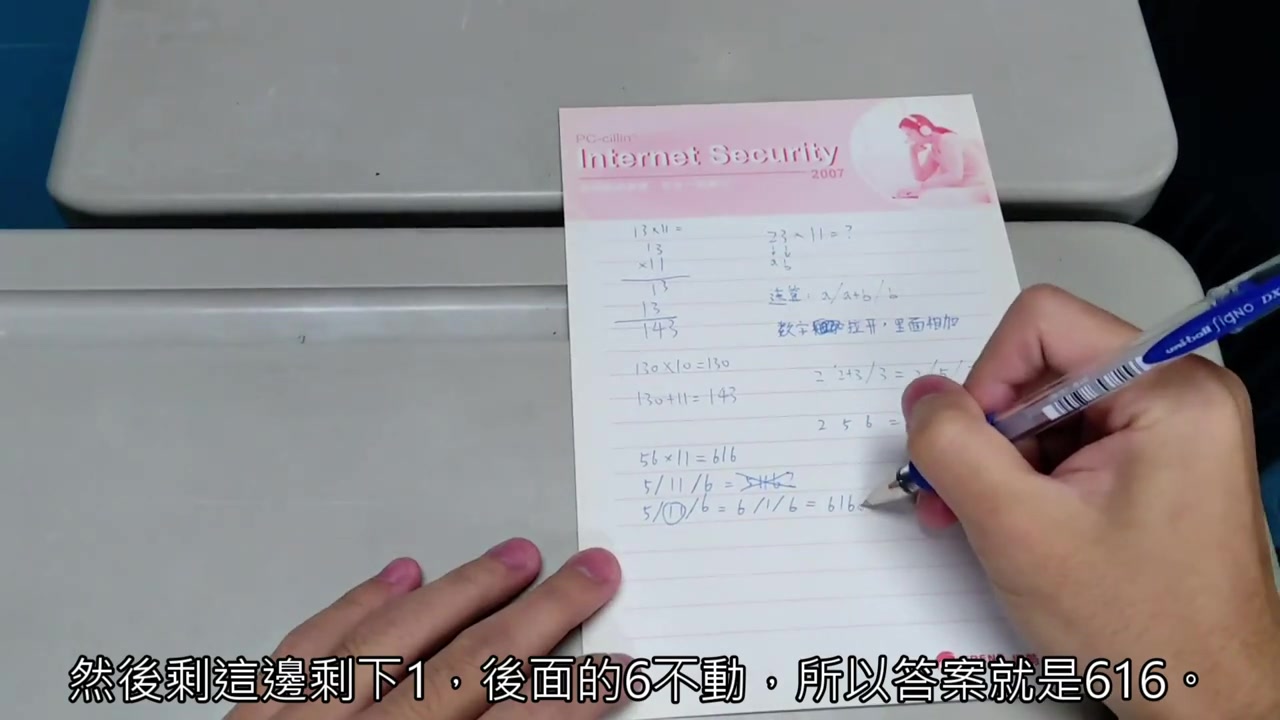 PC-cillin
Internet Security
2007
13×11=
13
×11
13
13
143
130×10=130
130+11=143
56×11=616
5/11/6 =
5/11/6 = 6/1/6 = 616
23×11=?
a b
速算: a/a+b/b
数字 拉开,里面相加
2 2+3/3 = 2/5/
2 5 6 =
uni-ball SIGNO DX
然後剩這邊剩下1,後面的6不動,所以答案就是616。